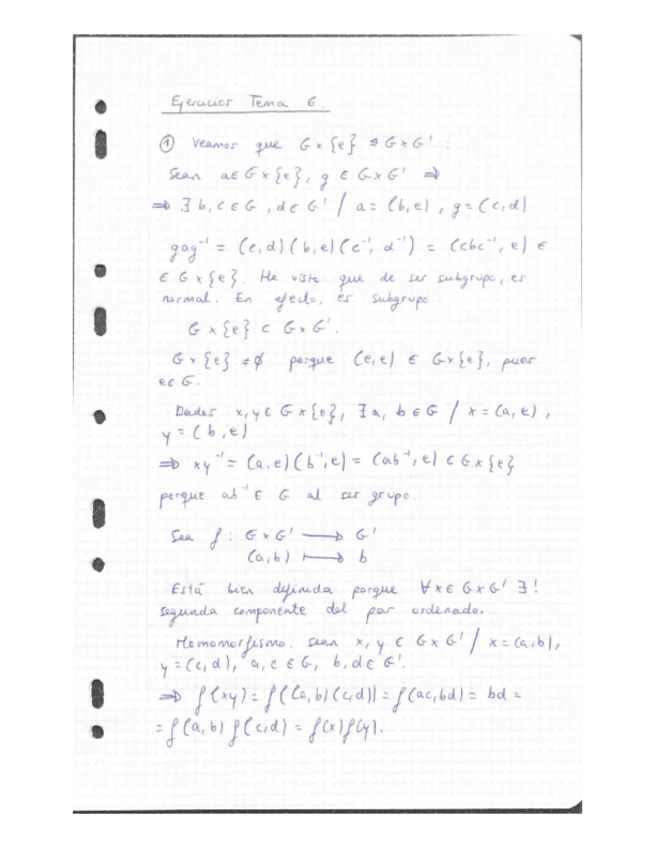 Ejercicios Tema 6.
① Veamos que G × {e} ⊴ G × G' :
Sean a ∈ G × {e}, g ∈ G × G' ⇒
⇒ ∃ b, c ∈ G, d ∈ G' / a = (b, e), g = (c, d)
gag⁻¹ = (c, d)(b, e)(c⁻¹, d⁻¹) = (cbc⁻¹, e) ∈
∈ G × {e}. He visto que de ser subgrupo, es
normal. En efecto, es subgrupo
G × {e} ⊂ G × G'.
G × {e} ≠ ∅ porque (e, e) ∈ G × {e}, pues
e ∈ G.
Dados x, y ∈ G × {e}, ∃ a, b ∈ G / x = (a, e),
y = (b, e)
⇒ xy⁻¹ = (a, e)(b⁻¹, e) = (ab⁻¹, e) ∈ G × {e}
porque ab⁻¹ ∈ G al ser grupo.
Sea f : G × G' ⟶ G'
(a, b) ⟼ b
Está bien definida porque ∀ x ∈ G × G' ∃!
segunda componente del par ordenado.
Homomorfismo: sean x, y ∈ G × G' / x = (a, b),
y = (c, d), a, c ∈ G, b, d ∈ G'.
⇒ f(xy) = f((a, b)(c, d)) = f(ac, bd) = bd =
= f(a, b) f(c, d) = f(x) f(y).